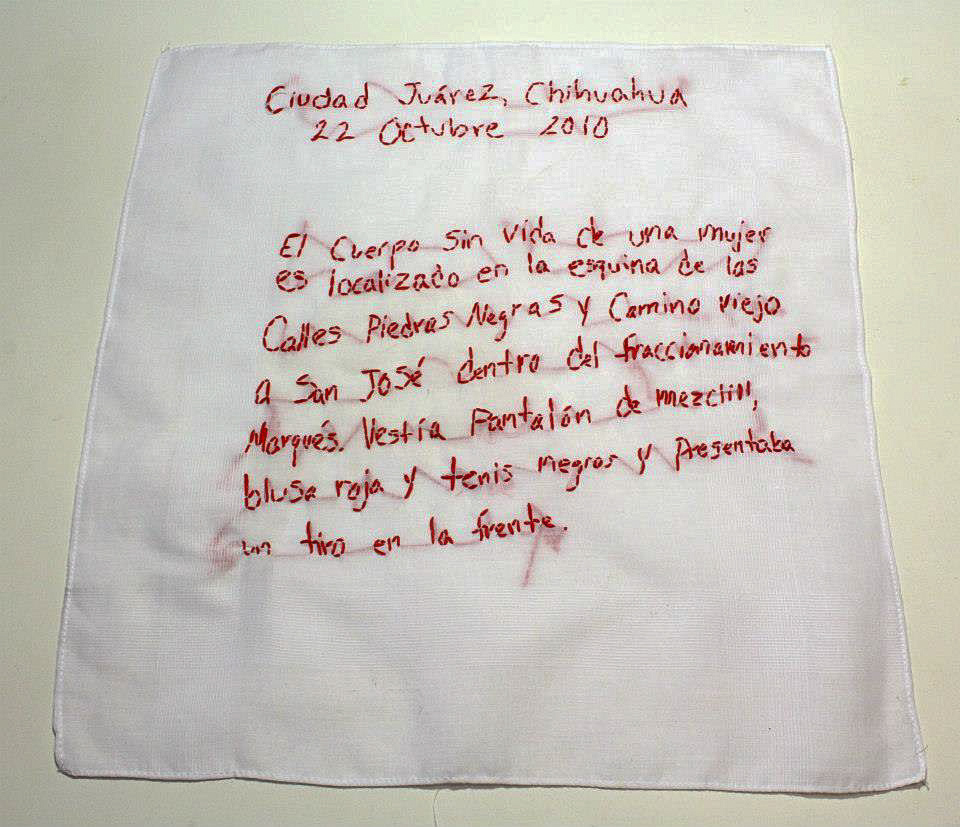 Ciudad Juárez, Chihuahua
22 Octubre 2010
El Cuerpo sin vida de una mujer
es localizado en la esquina de las
Calles Piedras Negras y Camino viejo
a San José dentro del fraccionamiento
Marqués. Vestía Pantalón de mezclill,
blusa roja y tenis negros y Presentaba
un tiro en la frente.